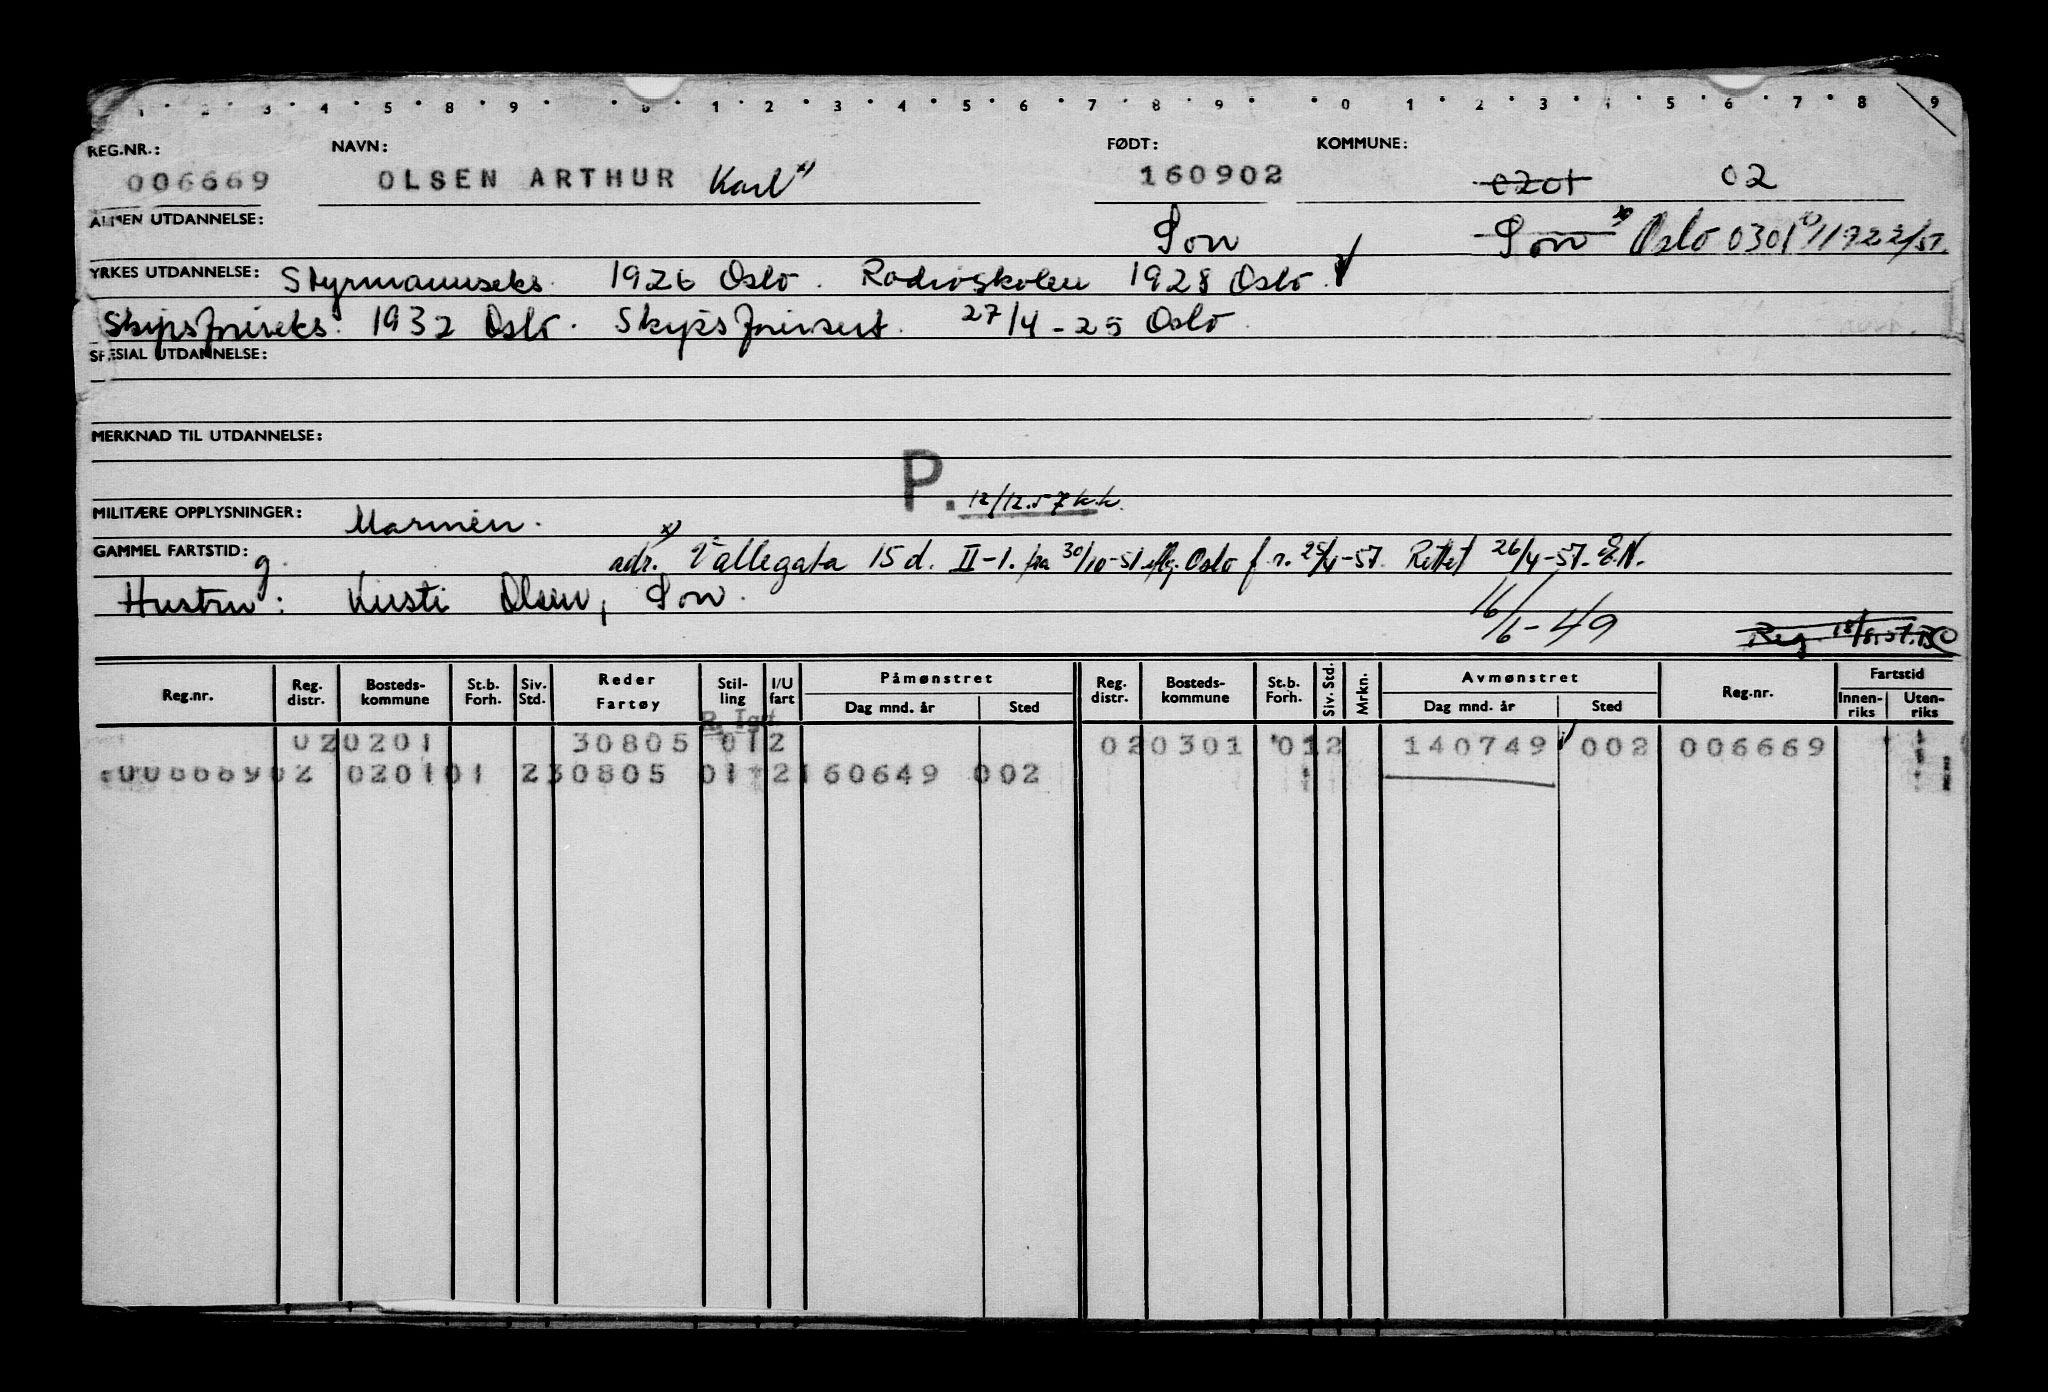 1 · 2 · 3 · 4 · 5 · 8 · 9 · · 0 · 1 · 2 · 3 · 4 · 5 · 6 · 7 · 8 · 9 · · 0 · 1 · 2 · 3 · 4 · 5 · 6 · 7 · 8 · 9
REG.NR.: NAVN: FØDT: KOMMUNE:
006669 OLSEN ARTHUR Karl x) 160902 0201 02
ALMEN UTDANNELSE: Son Son x) Oslo 0301
YRKES UTDANNELSE: Styrmannseks. 1926 Oslo. Radioskolen 1928 Oslo.
Skipsførereks. 1932 Oslo. Skipsførersert. 27/4-25 Oslo.
SPESIAL UTDANNELSE:
MERKNAD TIL UTDANNELSE:
P. 12/12.57 k.k.
MILITÆRE OPPLYSNINGER: Marinen.
GAMMEL FARTSTID: g. x) adr. Vallegata 15 d. II-1. fra 30/10-51 iflg. Oslo f.r. 25/4-57. Rettet 26/4-57. E.N.
Hustru: Kirsti Olsen, Son.
16/6-49 Reg. 18/8.57. BC
Reg.nr. Reg. distr. Bosteds- kommune St.b. Forh. Siv. Std. Reder Fartøy Stil- ling I/U fart Påmønstret Dag mnd. år Sted Reg. distr. Bosteds- kommune St.b. Forh. Siv. Std. Mrkn. Avmønstret Dag mnd. år Sted Reg.nr. Fartstid Innen- riks Uten- riks
020201 30805 012 020301 012 140749 002 006669
00666902 020101 230805 01 2160649 002